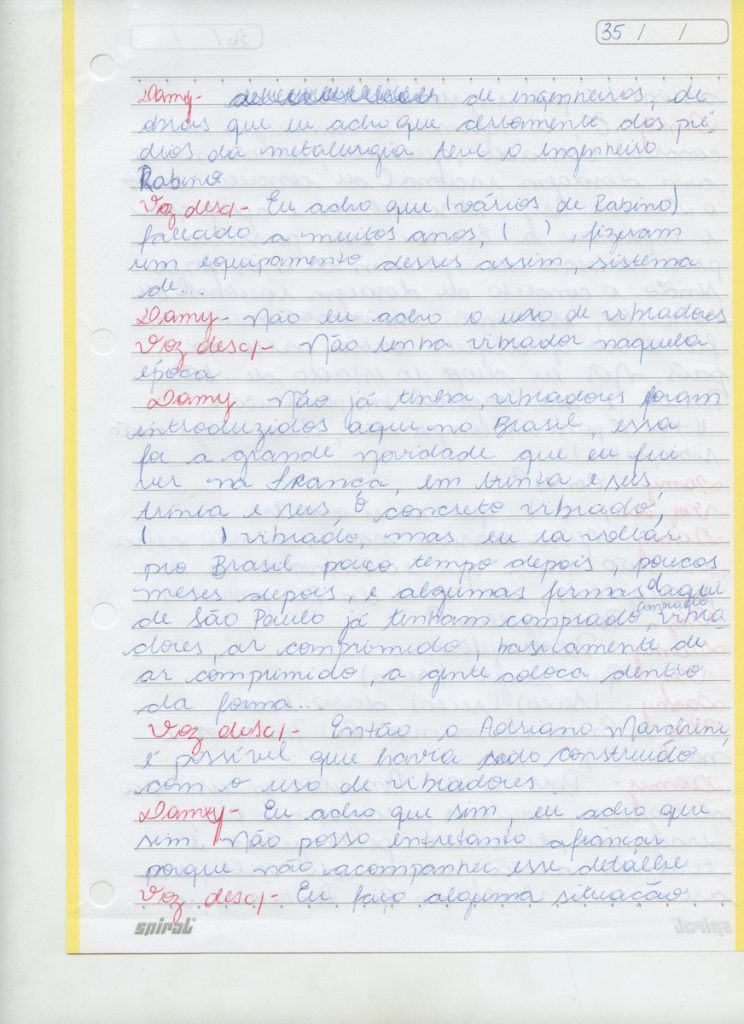 35 / /
Damy- de engenheiros, de
obras que eu acho que certamente dos pré-
dios da metalurgia teve o engenheiro
Rabino
Voz desc/- Eu acho que (vários de Rabino)
falecido a muitos anos, ( ), fizeram
um equipamento desses assim, sistema
de...
Damy- Não eu acho o uso de vibradores
Voz desc/- Não tinha vibrador naquela
época
Damy- Não já tinha, vibradores foram
introduzidos aqui no Brasil, essa
foi a grande novidade que eu fui
ver na França, em trinta e seis
trinta e seis, o concreto vibrado,
( ) vibrado, mas eu ia voltar
pro Brasil pouco tempo depois, poucos
meses depois, e algumas firmas daqui
de São Paulo já tinham comprado, vibra
dores, ar comprimido, basicamente de
ar comprimido, a gente coloca dentro
da forma...
Voz desc/- Então o Adriano Marchini,
é possível que havia sido construído
com o uso de vibradores
Damy- Eu acho que sim, eu acho que
sim. Não posso entretanto afiançar
porque não acompanhei esse detalhe
Voz desc/- Eu faço alguma situação
spiral